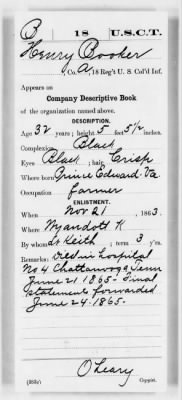 B 18 U.S.C.T.
Henry Booker
, Co. A, 18 Reg't U. S. Col'd Inf.
Appears on
Company Descriptive Book
of the organization named above.
DESCRIPTION.
Age 32 years; height 5 feet 5½ inches.
Complexion Black
Eyes Black; hair Crisp
Where born Prince Edward Va.
Occupation Farmer
ENLISTMENT.
When Nov 21, 1863.
Where Wyandott K
By whom Keith; term 3 y'rs.
Remarks: Died in hospital
No 4 Chattanooga Tenn
June 21 1865. Final
statements forwarded
June 24. 1865.
O'Leary
Copyist.